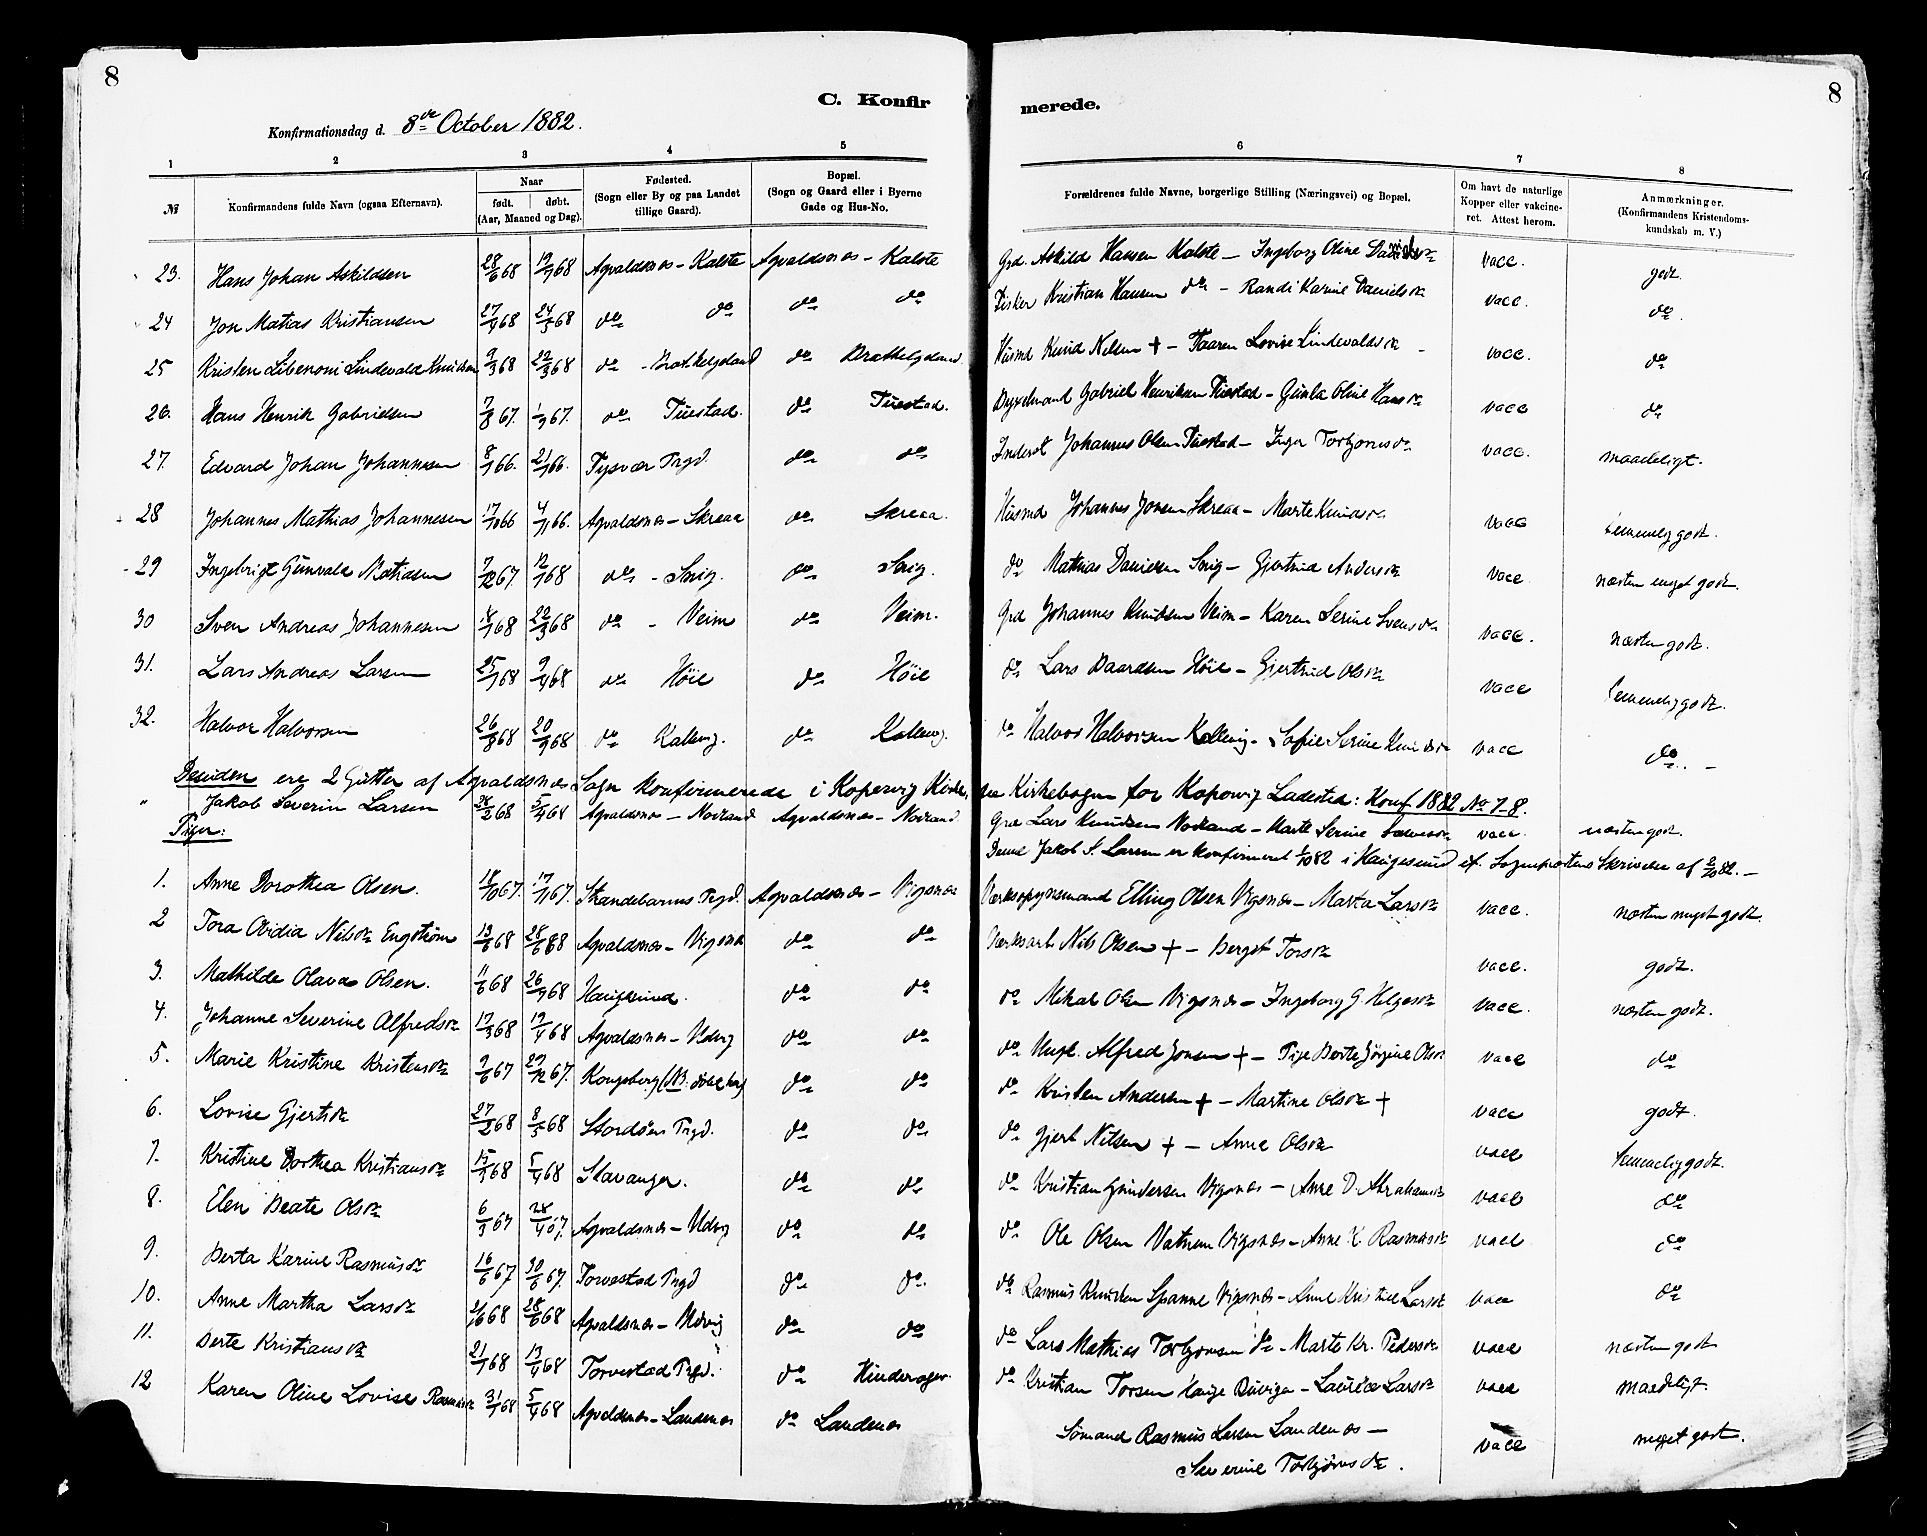 8
8
C. Konfir merede.
Konfirmationsdag d. 8de October 1882.
1 2 3 4 5 6 7 8
№ Konfirmandens fulde Navn (ogsaa Efternavn). Naar født. døbt. (Aar, Maaned og Dag). Fødested. (Sogn eller By og paa Landet tillige Gaard). Bopæl. (Sogn og Gaard eller i Byerne Gade og Hus-No. Forældrenes fulde Navne, borgerlige Stilling (Næringsvei) og Bopæl. Om havt de naturlige Kopper eller vakcineret. Attest herom. Anmærkninger. (Konfirmandens Kristendomskundskab m. V.)
23. Hans Johan Askildsen 28/6 68 19/7 68 Agvaldsnes - Kalstø Agvaldsnes - Kalstø Grd. Askild Hansen Kalstø - Ingeborg Oline vacc. godt.
24 Jon Matias Kristiansen 27/4 68 24/5 68 do do do do Fisker Kristian Hansen do - Randi Karine Danielsdr vacc. do.
25 Kristen Libenoni Lindevald Knudsen 9/3 68 22/3 68 do - Brathelgeland do Brathelgeland Husmd Knud Nilsen + - Taaren Lovise Lindevaldsdr vacc. do
26. Hans Henrik Gabrielsen 7/8 67. 1/9 67. do Tuestad. do Tuestad. Gabriel Henriksen Tuestad - Gunla Oline Hansdr vacc do
27. Edvard Johan Johannesen 8/1 66. 21/1 66. Tysvær Prgd. do do Inderst Johannes Olsen Tuestad - Inger Torbjørnsdr vacc. maadeligt.
28 Johannes Mathias Johannesen 17/10 66 4/11 66. Agvaldsnes - Skreaa do Skreaa. Husmd Johannes Jonsen Skreaa - Marte Knudsdr vacc temmelig godt.
29 Ingebrigt Gunvald Mathiasen 7/12 67. 12/1 68 do - Snig. do Snig. do Mathias Danielsen Snig - Gjertrud Andersdr vacc næsten meget godt.
30 Sven Andreas Johannesen 1/68 22/3 68 do - Veim do Veim. Grd Johannes Knudsen Veim - Karen Serine Svensdr vacc. næsten godt.
31. Lars Andreas Larsen 25/1 68 9/4 68 do Høie do Høie do Lars Baardsen Høie - Gjertrud Olsdr vacc temmelig godt.
32. Halvor Halvorsen 26/8 68 20/9 68 do Kallevig. do Kallevig. do Halvor Halvorsen Kallevig - Sofie Serine Knudsdr vacc do. -
Desuden ere 2 Gutter af Agvaldsnes Sogn konfirmerede i Kopervig Kirke, se Kirkebogen for Kopervig Ladested: Konf. 1882 No 7-8.
" Jakob Severin Larsen /2 68 5/4 68 Agvaldsnes - Norland Agvaldsnes - Norland Grd Lars Knudsen Norland - Marte Serine vacc. næsten godt.
Denne Jakob S. Larsen er konfirmeret 1/10 82 i Haugesund ef. Sogneprestens Skrivelse af 2/10 82. -
Piger:
1. Anne Dorothea Olsen. 18/10 67. 17/11 67. Strandebarms Prgd. Agvaldsnes - Vigsnes Elling Olsen Vigsnes - Marta Larsdr vacc. næsten meget godt.
2 Tora Ovidia Nilsdr Engstrøm 13/6 68 28/6 68 Agvaldsnes - Vigsnes do do Verksarb Nils Olsen + - Berget Torsdr vacc. godt.
3. Mathilde Olava Olsen. 11/6 68 26/9 68 Haugesund. do do do Mikal Olsen Vigsnes - Ingeborg G. Helgesdr vacc. næsten godt.
4. Johanne Severine Alfredsdr 17/3 68 19/4 68 Agvaldsnes - Udvig do do do Ungk. Alfred Jonsen + - Pige Berte Jørgine Olsdr vacc do
5. Marie Kristine Kristensdr 7/6 67 29/12 67. Kongsberg (NB. døbt her) do do do Kristen Andersen + - Martine Olsdr + vacc godt.
6. Lovise Gjertsdr 27/2 68 8/3 68 Stordøens Prgd. do do do Gjert Nilsen + - Anne Olsdr vacc temmelig godt.
7. Kristine Dorthea Kristiansdr 15/3 68 5/4 68 Stavanger. do do do Kristian Gundersen Vigsnes - Anne D. Abrahamsdr vacc do
8. Elen Beate Olsdr 6/3 67 28/4 67. Agvaldsnes - Udvig do do do Ole Olsen Vatnem Vigsnes - Anne K. Rasmusdr vacc do
9. Berta Karine Rasmusdr 16/6 67 30/6 67. Torvestad Prgd do do. do Rasmus Knudsen Spanne Vigsnes - Anne Kristine Larsdr vacc do
10. Anne Martha Larsdr 2/6 68 28/6 68 Agvaldsnes - Udvig do do do Lars Mathias Torbjørnsen do - Marte Kr. Pedersdr vacc næsten godt
11. Berte Kristiansdr 21/1 68 13/4 68 Torvestad Prgd. do Hinderager do Kristian Torsen Hauge Buvigen - Laurice Larsdr vacc maadeligt.
12 Karen Oline Lovise Rasmusdr 31/1 68 5/4 68 Agvaldsnes - Landenes do Landenes Sømand Rasmus Larsen Landenes - vacc meget godt.
Severine Torbjørnsdr.